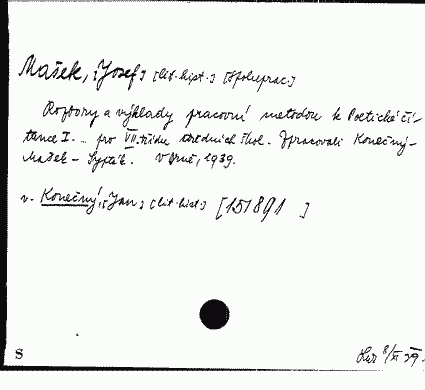 Mašek, [Josef] [lit. hist.] [spoluprac.]
Rozbory a výklady pracovní metodou k Poetické čí-
tance I. .. pro VII. třídu středních škol. Zpracovali Konečný-
Mašek - Syptá. V Brně, 1939.
v. Konečný, [Jan] [lit. hist.] [151891 ]
S 8/XI 39.